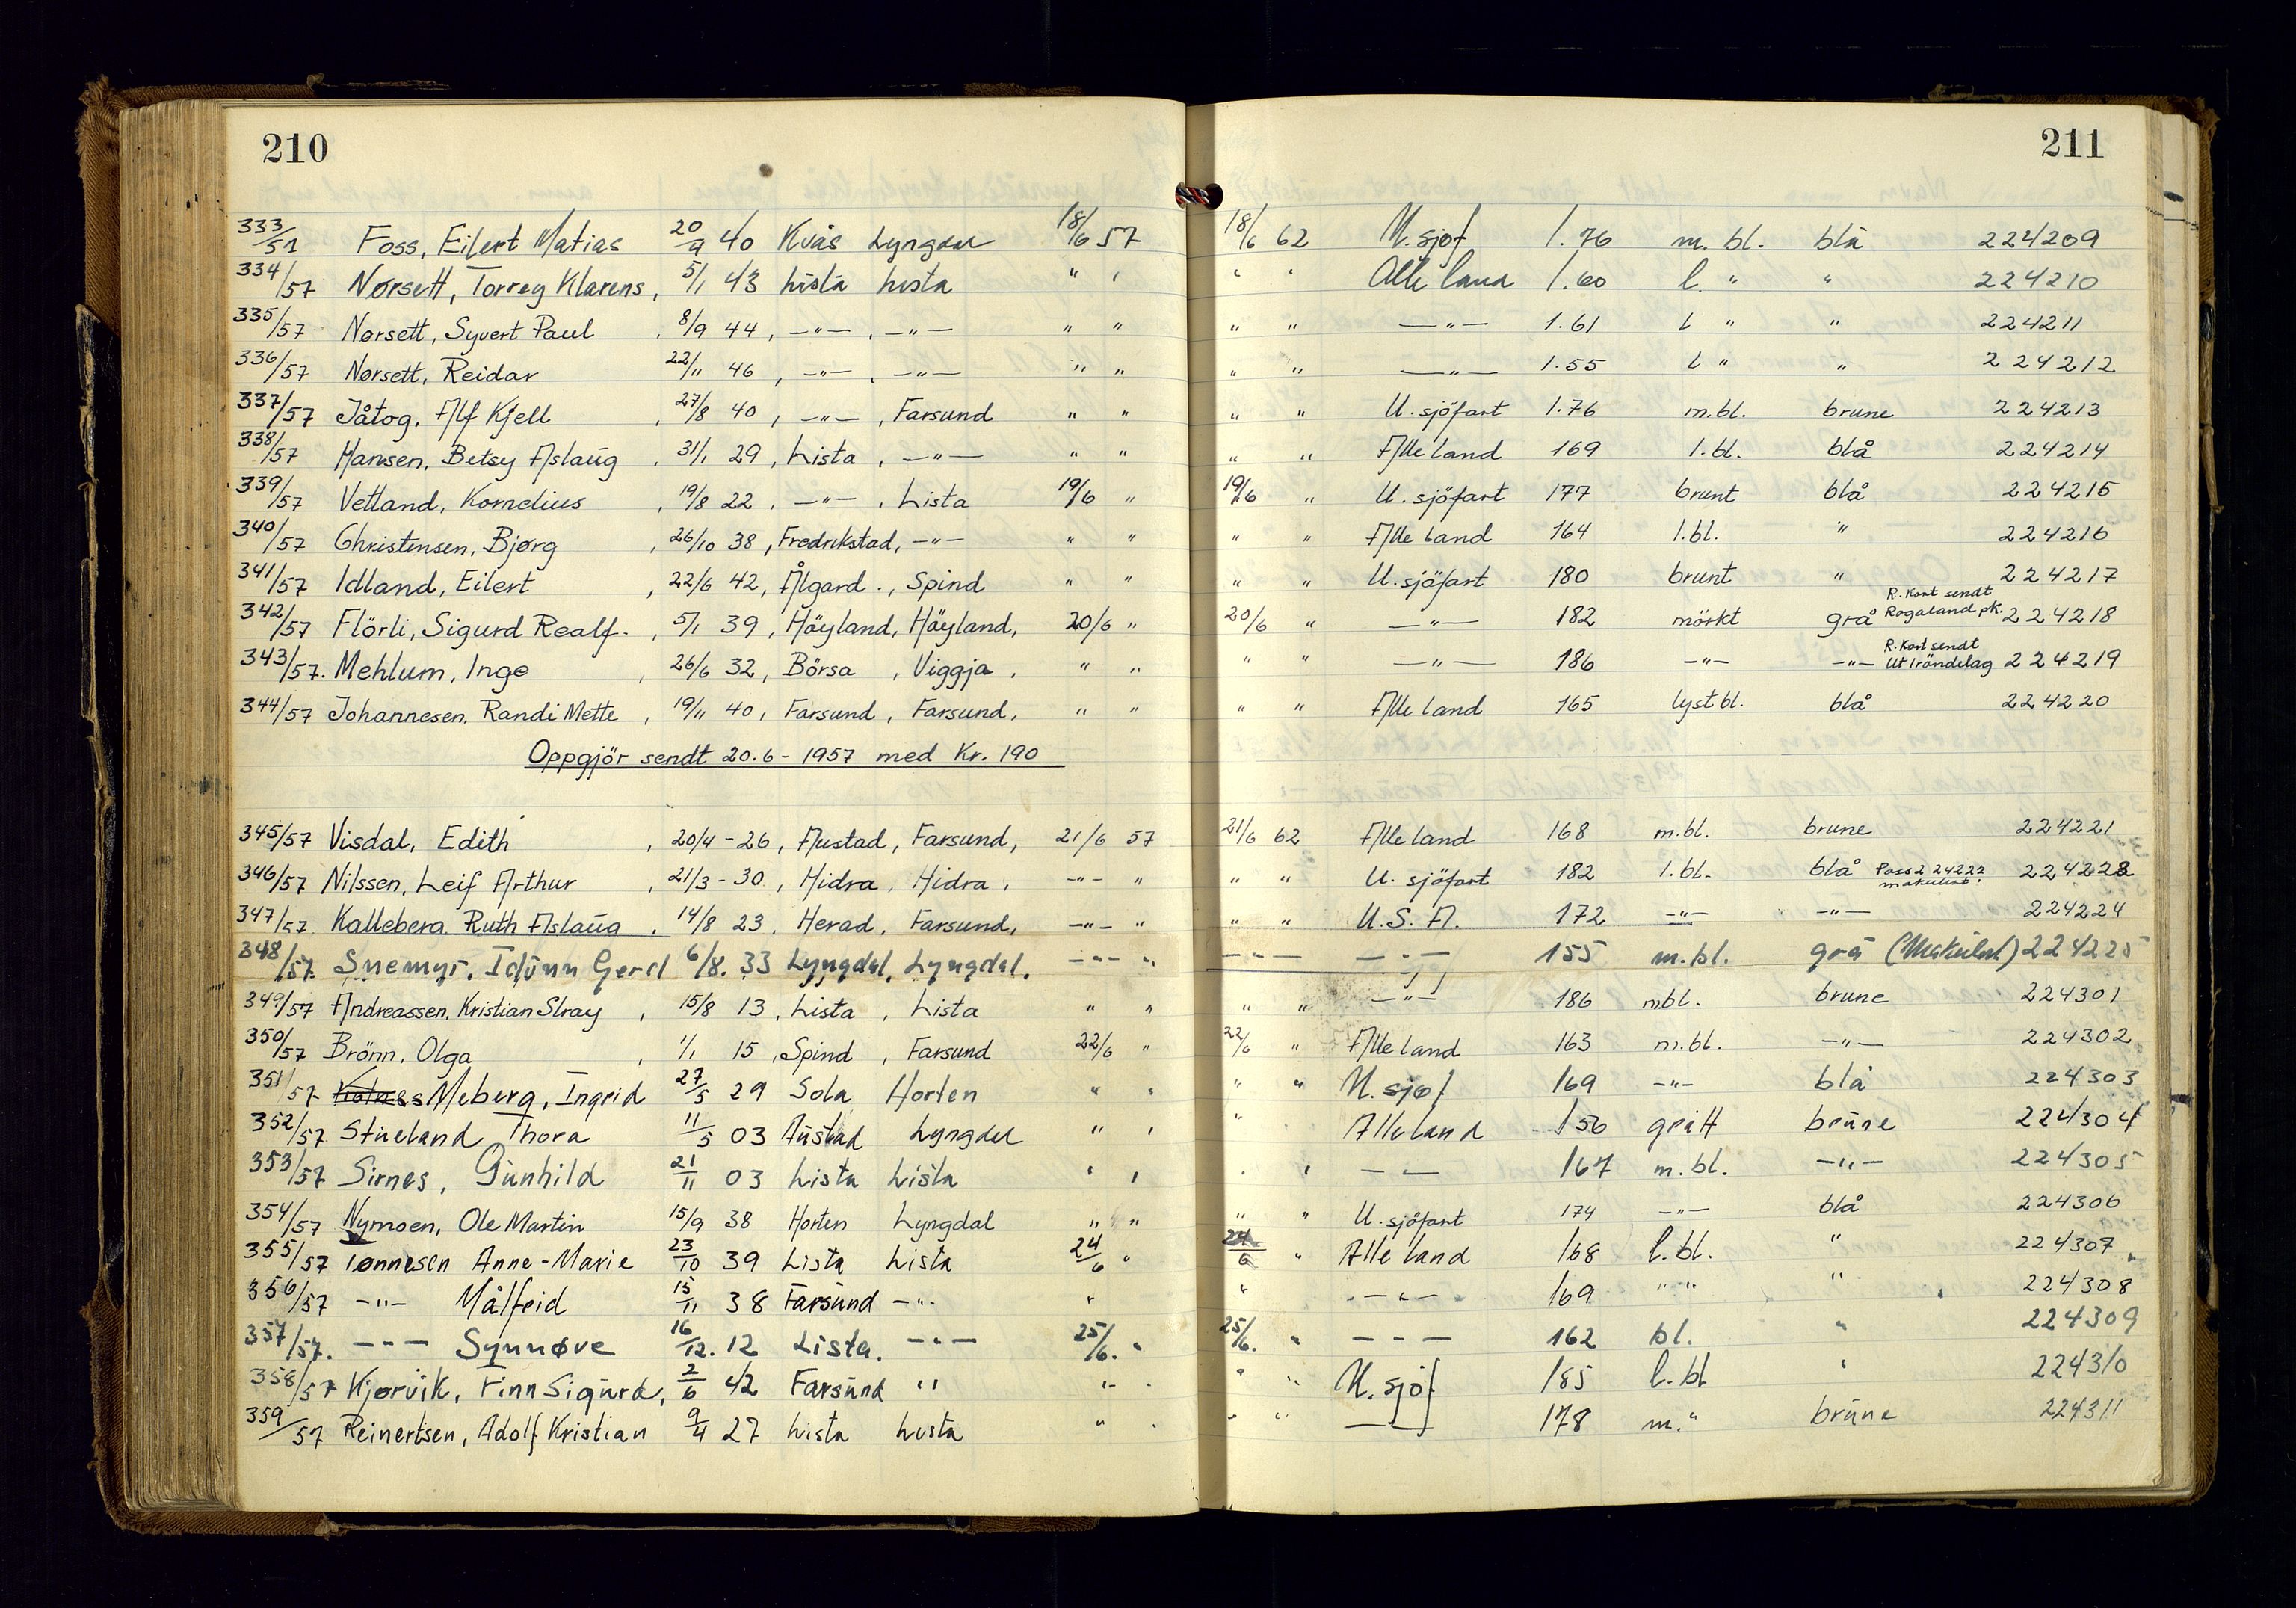 210
211
333/57 Foss, Eilert Matias 20/9 40 Kvås Lyngdal 18/6 57 18/6 62 U. sjøf 1.76 m. bl. blå 224209
334/57 Nørsett, Torrey Klarens, 5/1 43 Lista Lista " " " " Alle land 1.60 l. " " 224210
335/57 Nørsett, Syvert Paul , 8/9 44, -"- , -"- " " " " -"- 1.61 l " " 224211
336/57 Nørsett, Reidar 22/11 46 , -"- , -"- " " " " -"- 1.55 l " " 224212
337/57 Jåtog, Alf Kjell , 27/8 40 , -"- , Farsund " " " " U. sjöfart 1.76 m.bl. brune 224213
338/57 Hansen, Betsy Aslaug , 31/1 29 , Lista , -"- " " " " Alle land 169 l.bl. blå 224214
339/57 Vetland, Kornelius , 19/8 22 , -"- , Lista 19/6 " 19/6 " U. sjöfart 177 brunt blå 224215
340/57 Christensen, Bjørg , 26/10 38 , Fredrikstad, -"- " " " " Alle land 164 l.bl. " 224216
341/57 Idland, Eilert , 22/6 42, Ålgard ., Spind " " " " U. sjöfart 180 brunt " 224217
342/57 Flörli, Sigurd Realf. , 5/1 39 , Höyland, Höyland, 20/6 " 20/6 " -"- 182 mörkt grå R. Kort sendt Rogaland pk. 224218
343/57. Mehlum, Inge , 26/6 32, Börsa , Viggja , " " " " -"- 186 -"- -"- R. Kort sendt Utröndelag 224219
344/57 Johannesen, Randi Mette , 19/11 40, Farsund, Farsund, " " " " Alle land 165 lyst bl. blå 224220
Oppgjör sendt 20.6 - 1957 med Kr. 190
345/57 Visdal, Edith , 20/4 - 26, Austad, Farsund, 21/6 57 21/6 62 Alle land 168 m.bl. brune 224221
346/57 Nilssen, Leif Arthur , 21/3 - 30 , Hidra, Hidra, -"- " " " U. sjöfart 182 l.bl. blå Pass 224222 makulert. 224223
347/57 Kalleberg, Ruth Aslaug , 14/8 23, Herad, Farsund, -"- " " " U.S.A. 172 -"- -"- 224224
348/57. Snemyr, Idunn Gerd 6/8. 33 Lyngdal, Lyngdal. -"- " -"- -"- 155 m.bl. grå (Makulert) 224225
349/57 Andreassen, Kristian Stray , 15/8 13, Lista , Lista " " " " -"- 186 m.bl. brune 224301
350/57 Brönn, Olga , 1/1 15 , Spind , Farsund 22/6 " 22/6 " Alle land 163 m.bl. -"- 224302
351/57 Meberg, Ingrid 27/5 29 Sola Horten " " " " U. sjøf 169 -"- blå 224303
352/57 Stueland Thora 11/5 03 Austad Lyngdal " " " Alle land 156 grått brune 224304
353/57 Sirnes, Gunhild 21/11 03 Lista Lista " " " " -"- 167 m. bl. -"- 224305
354/57 Nymoen, Ole Martin 15/9 38 Horten Lyngdal " " " " U. sjöfart 174 -"- blå 224306
355/57 Tønnesen Anne-Marie 23/10 39 Lista Lista 24/6 " 24/6 " Alle land 168 l. bl. " 224307
356/57 -"- Målfrid 15/11 38 Farsund -"- " " -"- 169 " " " 224308
357/57. -"- Synnøve 16/12. 12 Lista. -"- 25/6. " 25/6. " -"- 162 bl. " 224309
358/57 Kjørvik, Finn Sigurd, 2/6 42 Farsund " " " " " U. sjøf 185 l. bl " 224310
359/57 Reinertsen, Adolf Kristian 9/4 27 Lista Lista " " " " -"- 178 m. " brune 224311